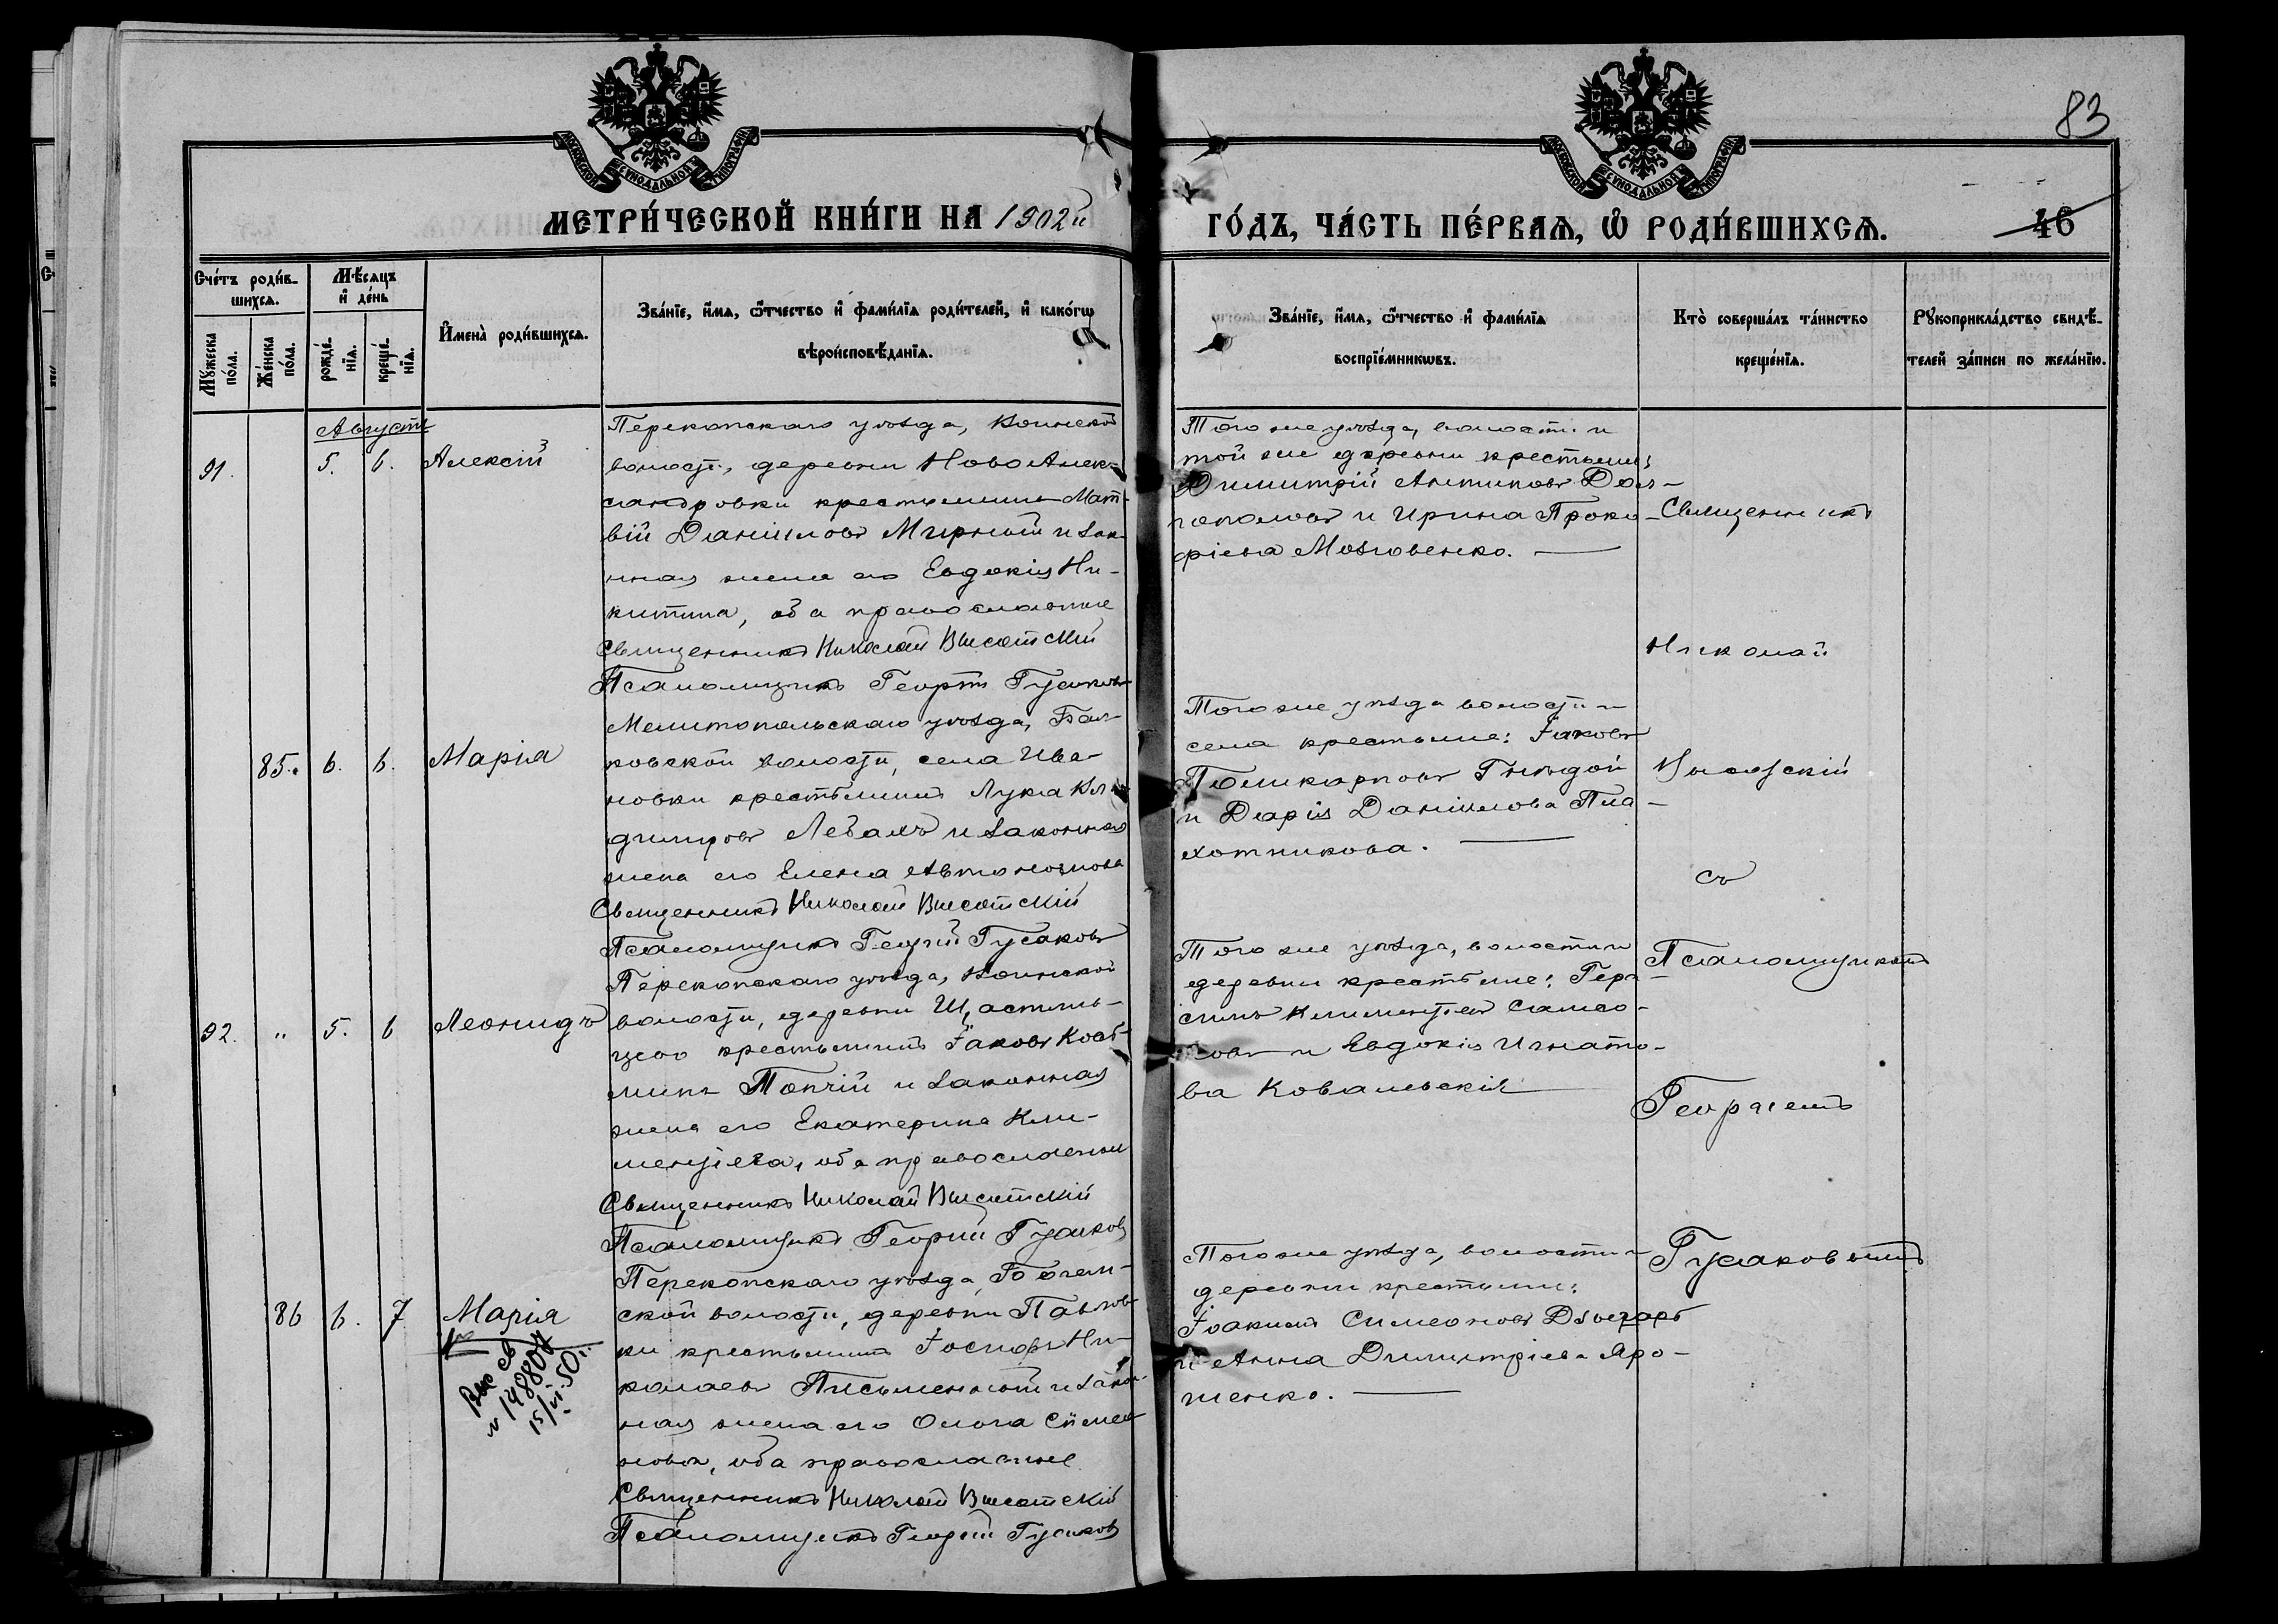 83
МОСКОВСКОЙ СѴНОДАЛЬНОЙ ТИПОГРАФІИ
МОСКОВСКОЙ СѴНОДАЛЬНОЙ ТИПОГРАФІИ
МЕТРИ́ЧЕСКОЙ КНИ́ГИ НА 1902й
ГО́ДЪ, ЧА́СТЬ ПЕ́РВАЯ, Ѡ РОДИ́ВШИХСЯ.
46
Сче́тъ роди́в-
шихся.
Мꙋжеска по́ла.
Же́нска по́ла.
Мѣ́сяцъ
и҆ де́нь
рожде́-
нїя.
креще́-
нїя.
И҆мена̀ роди́вшихся.
Зва́нїе, и҆́мя, ѻ҆́тчество и҆ фами́лїя роди́телей, и҆ како́гѡ
вѣроисповѣ́данїя.
Зва́нїе, и҆́мя, ѻ҆́тчество и҆ фами́лїя
воспрїе́мникѡвъ.
Кто̀ соверша́лъ та́инство
креще́нїя.
Рꙋкоприкла́дство свидѣ́-
телей за́писи по жела́нїю.
Августъ
91.
5.
6.
Алексій
Перекопскаго уѣзда, Воинской
волости, деревни Ново Алек-
сандровки крестьянинъ Мат-
вій Даніиловъ Мирный и зак-
нная жена его Евдокія Ни-
китина, оба православные
Священникъ Николай Высотскій
Псаломщикъ Георгій Гусаковъ
Того же уѣзда, волости и
той же деревни крестьяне:
Димитрій Антиповъ Дол-
гополовъ и Ирина Проко-
фіева Мозговенко.
85.
6.
6.
Марія
Мелитопольскаго уѣзда, Бал-
ковской волости, села Ива-
новки крестьянинъ Лука
Лебахъ и законная
жена его Елена Автономова
Священникъ Николай Высотскій
Псаломщикъ Георгій Гусаковъ
Того же уѣзда волости и
села крестьяне: Іаковъ
Поликарповъ Гнѣдой
и Дарія Даніилова Пла-
хотникова.
92.
"
5.
6
Леонидъ
Перекопскаго уѣзда, Воинской
волости, деревни Щастлив-
цево крестьянинъ Іаковъ Кось-
минъ Топчій и законная
жена его Екатерина Кли-
ментіева, оба православные
Священникъ Николай Высотскій
Псаломщикъ Георгій Гусаковъ
Того же уѣзда, волости и
деревни крестьяне: Гера-
симъ Климентіевъ
и Евдокія Игнато-
ва Ковальскія
86
6.
7
Марія
Выс св
№ 14880
15/VI-50г.
Перекопскаго уѣзда,
ской волости, деревни Павлов-
ки крестьянинъ Іосифъ Ни-
колаевъ Письменный и закон-
ная жена его Ольга Симео-
нова, оба православные
Священникъ Николай Высотскій
Псаломщикъ Георгій Гусаковъ
Того же уѣзда, волости и
деревни крестьяне:
Іоакимъ Симеоновъ
и Анна Димитріева Яро-
шенко.
Священникъ
Николай
Высотскій
съ
Псаломщикомъ
Георгіемъ
Гусаковымъ